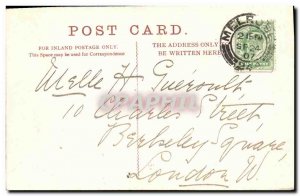 POST CARD.
FOR INLAND POSTAGE ONLY.
This Space may be used for Correspondence
THE ADDRESS ONLY
BE WRITTEN HERE
MELB
Melle H. Gueroult,
10 Charles Street,
Berkeley Square,
London W.